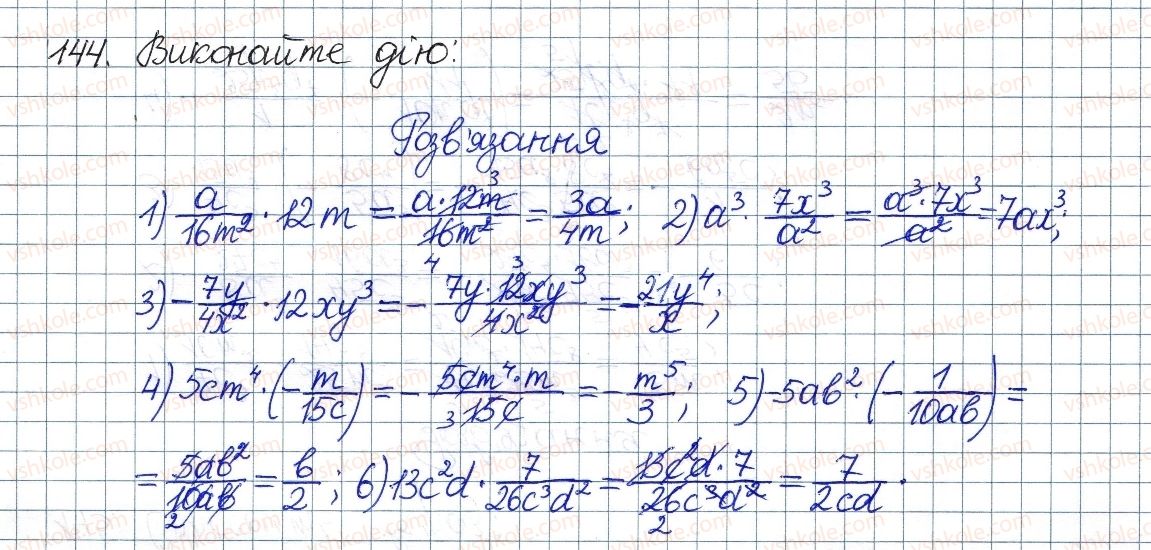 144. Виконайте дію:
Розв'язання
1) a/16m² · 12m = a·12m/16m² = 3a/4m; 2) a³ · 7x³/a² = a³·7x³/a² = 7ax³;
3) -7y/4x² · 12xy³ = -7y·12xy³/4x² = -21y⁴/x;
4) 5cm⁴ · (-m/15c) = -5cm⁴·m/15c = -m⁵/3; 5) -5ab² · (-1/10ab) =
= 5ab²/10ab = b/2; 6) 13c²d · 7/26c³d² = 13c²d·7/26c³d² = 7/2cd.